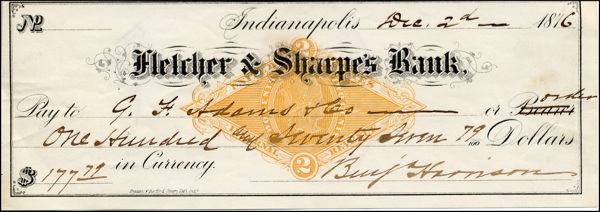 No. Indianapolis Dec. 2d 1876
Fletcher & Sharpe's Bank,
Pay to G. F. Adams & Co or order Bearer
One Hundred and Seventy Seven 79/100 Dollars
$177 79 in Currency. Benj Harrison
2 2